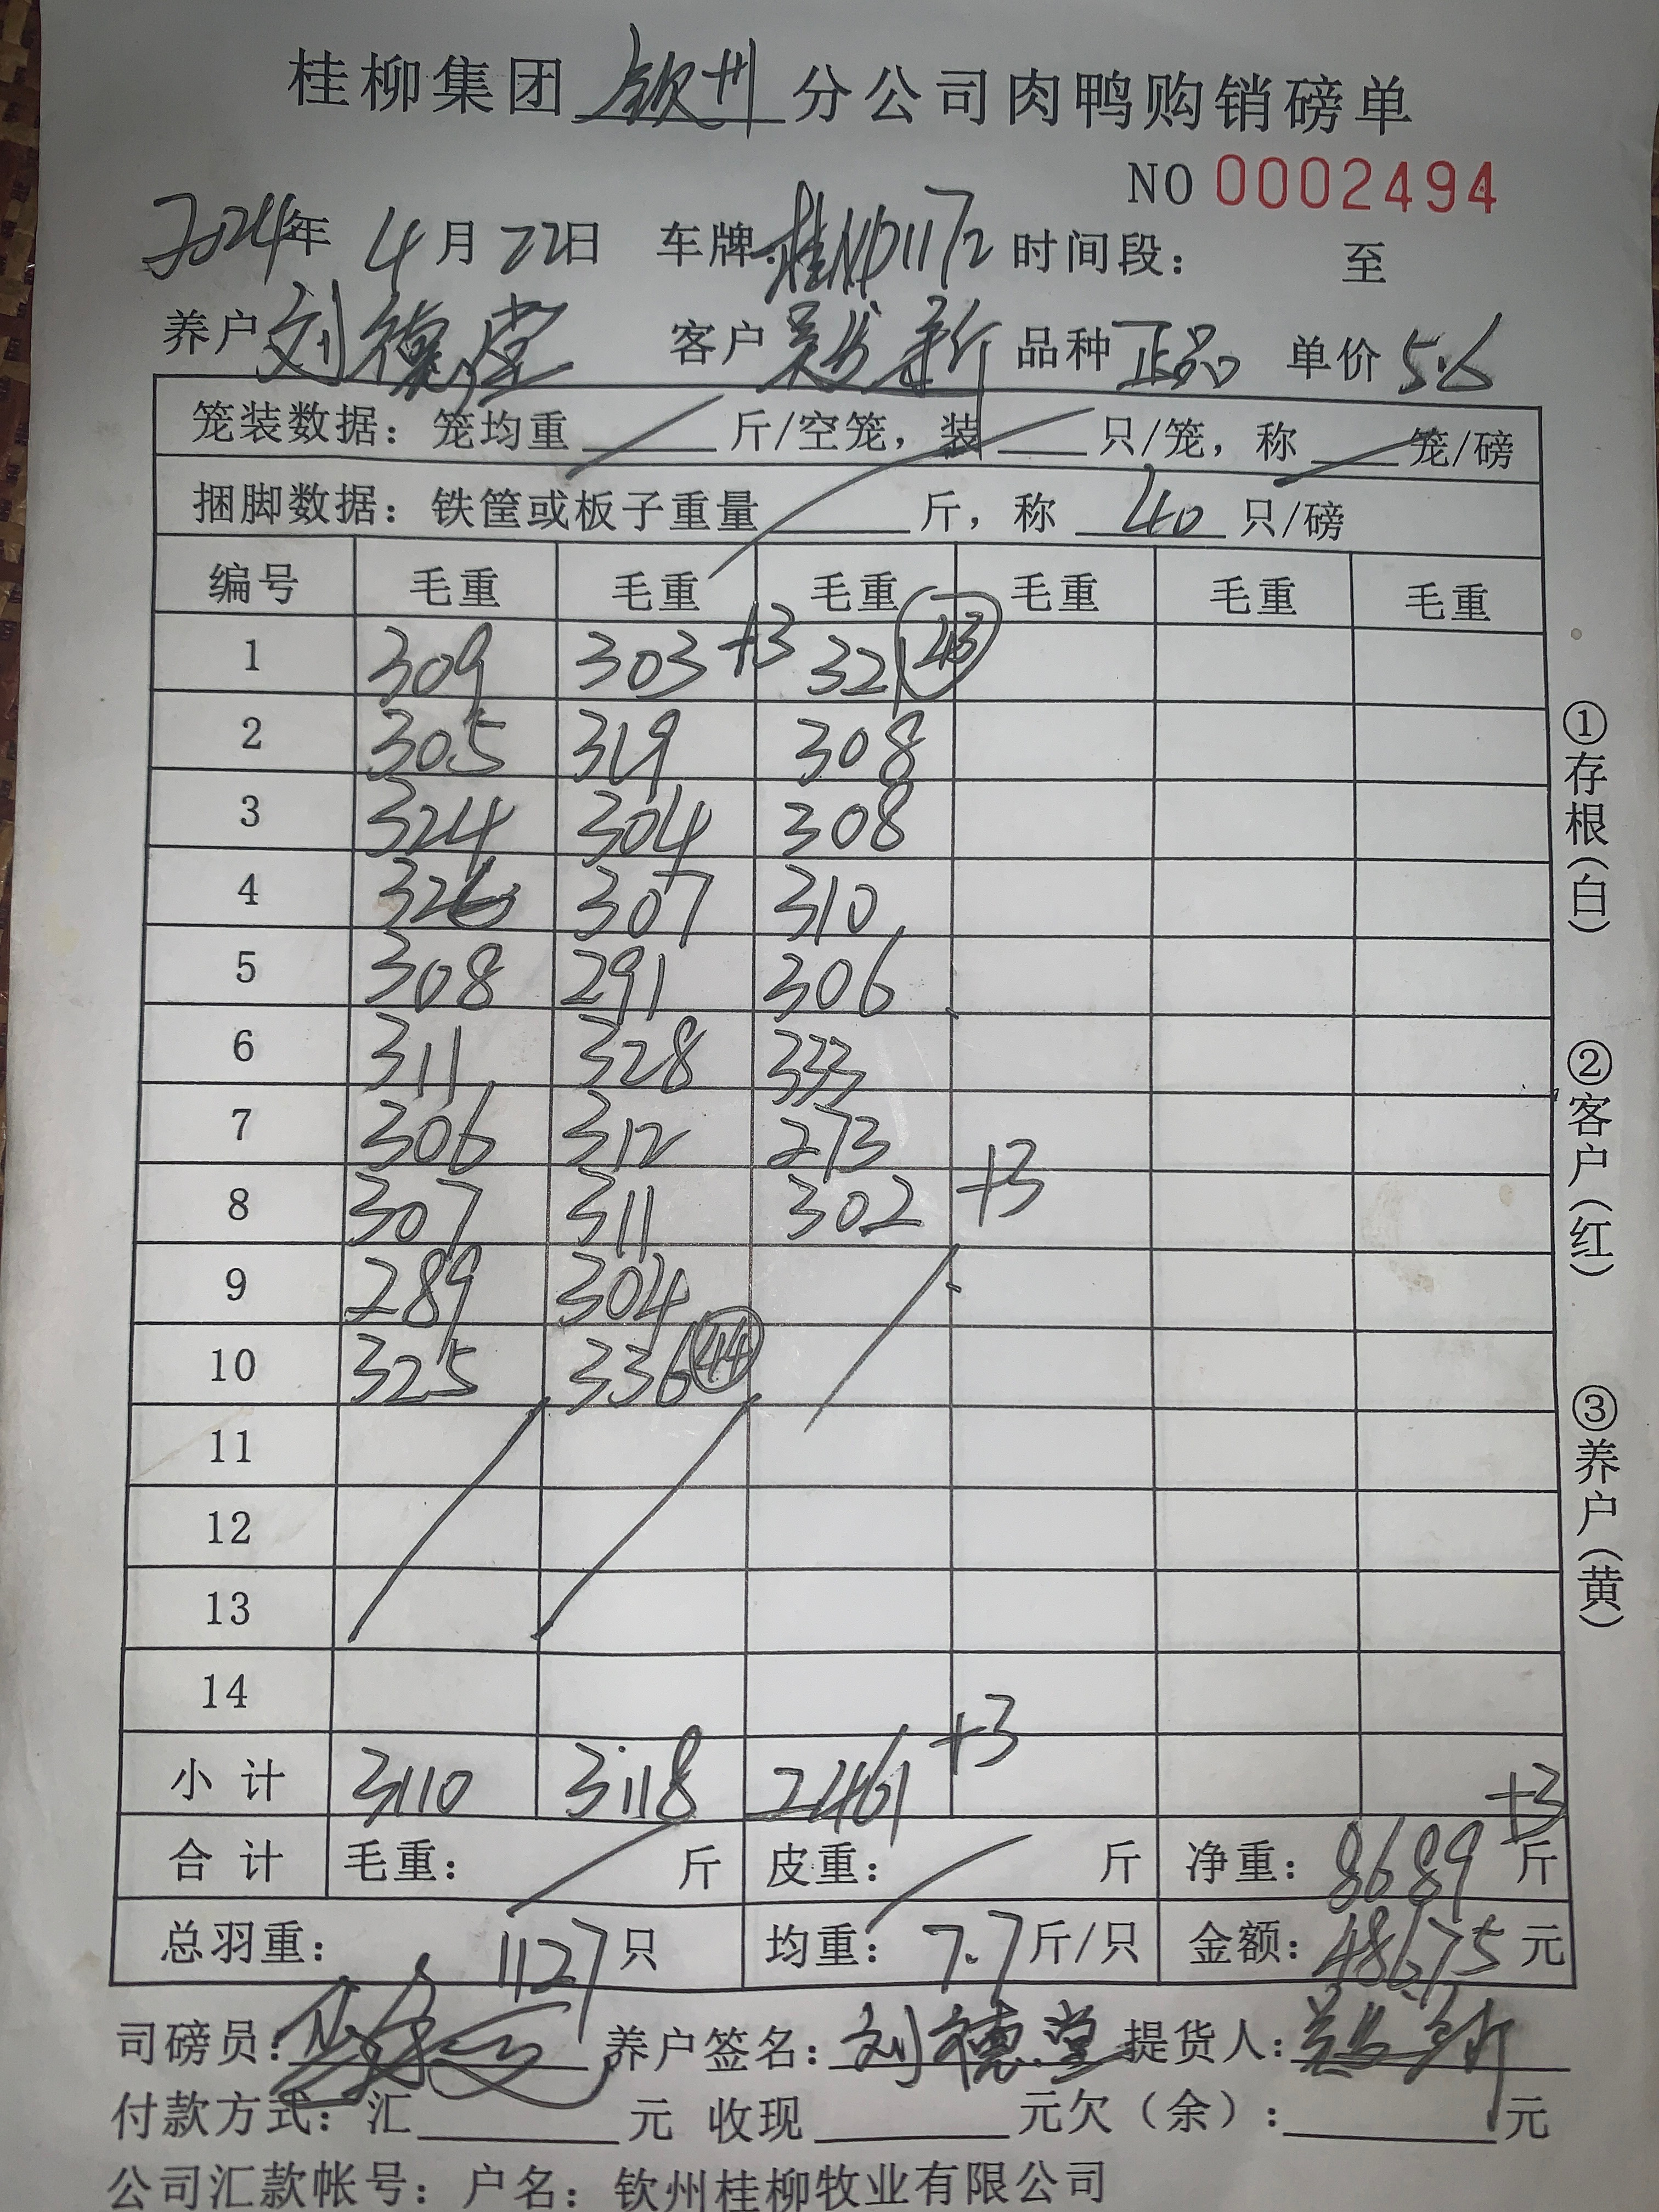 桂柳集团 钦州 分公司肉鸭购销磅单
NO 0002494
2024年 4月22日 车牌:桂ND1172 时间段： 至
养户 刘德堂 客户 吴发新 品种 正品 单价 5.6
笼装数据：笼均重 斤/空笼，装 只/笼，称 笼/磅
捆脚数据：铁筐或板子重量 斤，称 40 只/磅
编号 毛重 毛重 毛重 毛重 毛重 毛重
1 309 303 +3 321 43
2 305 319 308
3 324 304 308
4 326 307 310
5 308 291 306
6 311 328 333
7 306 312 273
8 307 311 302 +3
9 289 304
10 325 336 44
11
12
13
14
小计 3110 3118 2461 +3
合计 毛重： 斤 皮重： 斤 净重：8689 +3 斤
总羽重： 1127只 均重：7.7斤/只 金额：48675元
司磅员： 养户签名：刘德堂 提货人：吴发新
付款方式：汇 元 收现 元欠（余）： 元
公司汇款帐号：户名：钦州桂柳牧业有限公司
①存根（白）
②客户（红）
③养户（黄）